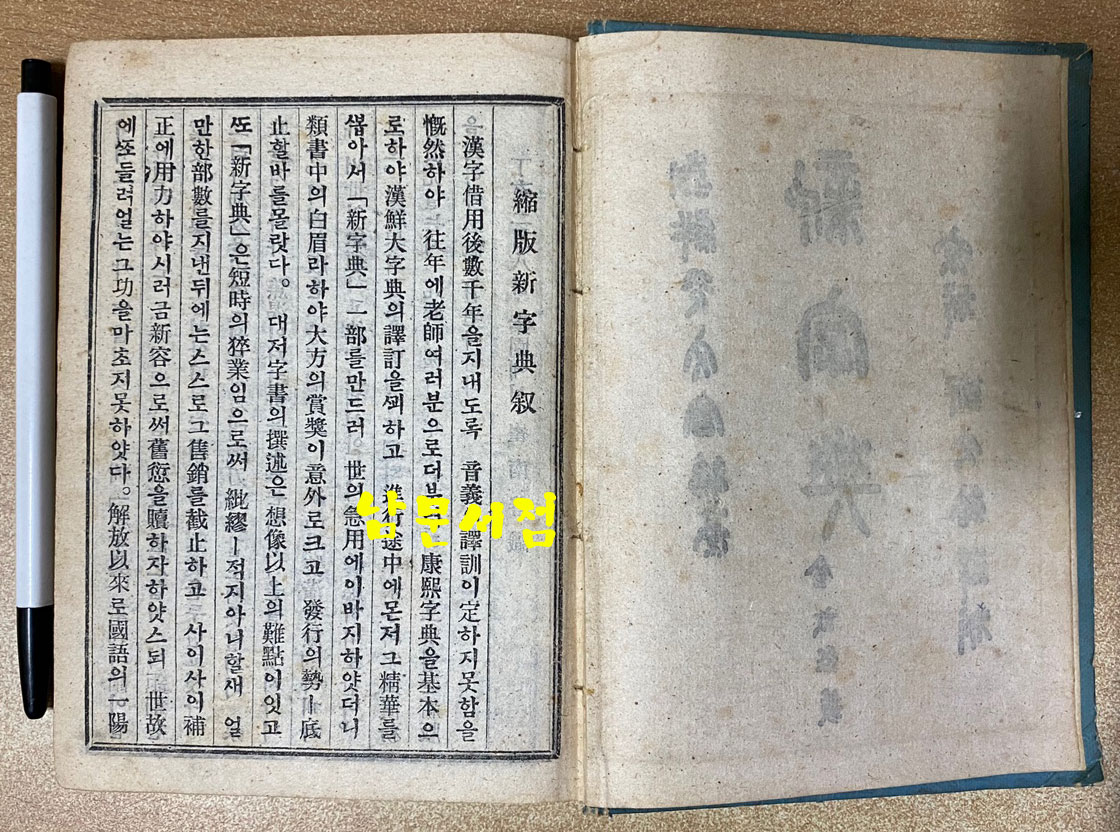 縮版新字典叙
을漢字借用後數千年을지내도록 音義 譯訓이定하지못함을
慨然하야 往年에老師여러분으로더부 康熙字典을基本으
로하야漢鮮大字典의譯訂을ᄭᅬ하고 進行途中에몬저그精華를
ᄲᅩᆸ아서「新字典」一部를만드러 世의急用에이바지하얏더니
類書中의白眉라하야大方의賞奬이意外로크고 發行의勢ㅣ底
止할바를몰랏다。대저字書의撰述은想像以上의難點이잇고
ᄯᅩ「新字典」은短時의猝業임으로써 紕繆ㅣ적지아니할새 얼
만한部數를지낸뒤에는스스로그售銷를截止하고 사이사이補
正에用力하야으시러금新容으로써舊愆을贖하자하얏스되 世故
에ᄶᅩ들려얼는그功을마초지못하얏다。解放以來로國語의一陽
남문서점